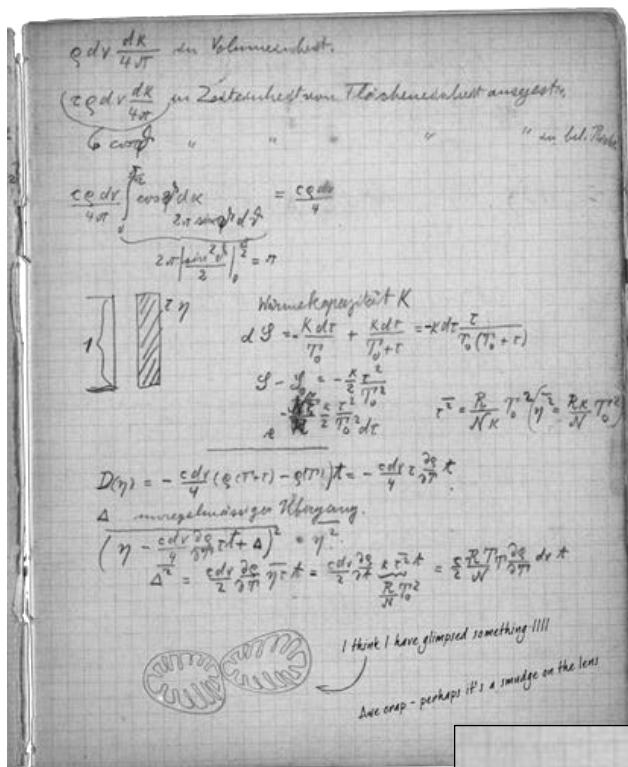 ρ dν dκ/4π in Volumeinheit.
(c ρ dν dκ/4π) in Zeiteinheit von Flächeneinheit ausgestr.
cos ϑ " " " " " in bel. Richt
cρdν/4π ∫ cosϑ dκ = cρdν/4
2π sinϑ dϑ
2π |sin²ϑ/2|₀^π/2 = π
1 τ η
Wärmekapazität K
dS = -κdτ/T₀ + κdτ/T₀+τ = -κdτ τ/T₀(T₀+τ)
S - S₀ = -κ/2 τ²/T₀²
e -N/R κ/2 τ²/T₀² dτ τ̄² = R/Nκ T₀² (η̄² = Rκ/N T₀²)
D(η) = - cdν/4 (ρ(T+τ) - ρ(T)) t = - cdν/4 τ ∂ρ/∂T t
Δ unregelmässiger Übergang.
(η - cdν/4 ∂ρ/∂T τt + Δ)² = η̄²
Δ̄² = cdν/2 ∂ρ/∂T η̄τ̄ t = cdν/2 ∂ρ/∂t κ τ̄² t = c/2 R/N T T ∂ρ/∂T dν t
R/N T₀²
I think I have glimpsed something !!!!
Awe crap - perhaps it's a smudge on the lens